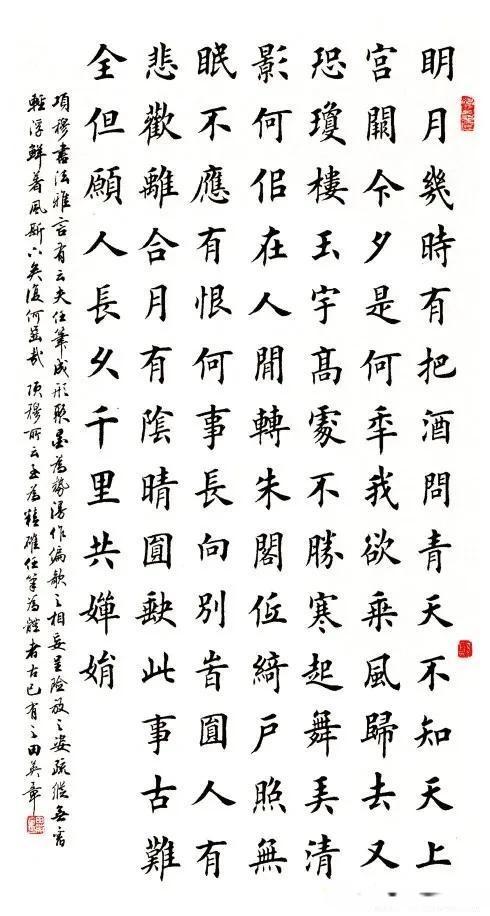 明月幾時有把酒問青天不知天上
宮闕今夕是何秊我欲乘風歸去又
恐瓊樓玉宇高處不勝寒起舞弄清
影何佀在人間轉朱閣低綺戶照無
眠不應有恨何事長向別旹圓人有
悲歡離合月有陰晴圓缺此事古難
全但願人長久千里共嬋娟
項穆書法雅言有云夫任筆成形聚墨為勢漫作偏欹之相妄呈險放之姿疏縱無
輕浮鮮著風斯下矣復何齒哉項穆所云至為精確任筆為體者古已有之田英章